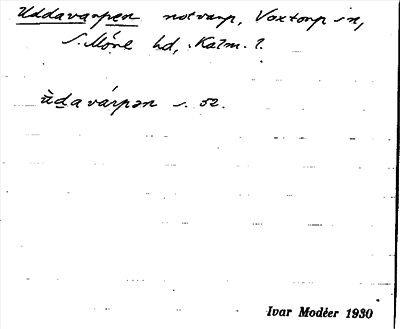 Uddavarpen notvarp, Voxtorp sn,
S. Möre hd, Kalm. l.
ùdavárpən s. 52.
Ivar Modéer 1930